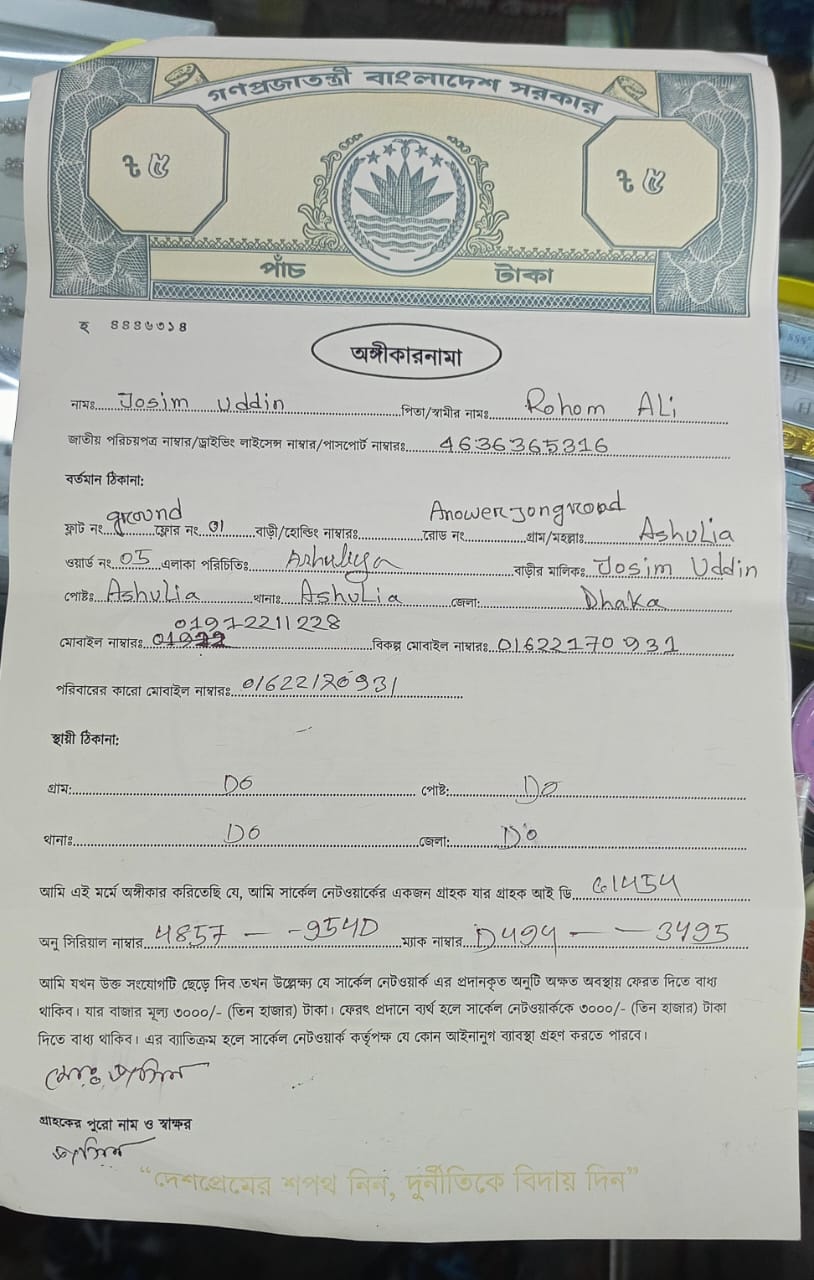 গণপ্রজাতন্ত্রী বাংলাদেশ সরকার
৳ ৫ ৳ ৫
পাঁচ টাকা
হ ৪৪৪৬৩১৪
অঙ্গীকারনামা
নামঃ Josim Uddin পিতা/স্বামীর নামঃ Rohom ALi
জাতীয় পরিচয়পত্র নাম্বার/ড্রাইভিং লাইসেন্স নাম্বার/পাসপোর্ট নাম্বারঃ 4636365316
বর্তমান ঠিকানা:
ফ্লাট নং ground ফ্লোর নং 01 বাড়ী/হোল্ডিং নাম্বারঃ রোড নং Anower jong road গ্রাম/মহল্লাঃ AshuLia
ওয়ার্ড নং 05 এলাকা পরিচিতিঃ Ashuliya বাড়ীর মালিকঃ Josim Uddin
পোষ্টঃ AshuLia থানাঃ AshuLia জেলা: Dhaka
মোবাইল নাম্বারঃ 01972211228 বিকল্প মোবাইল নাম্বারঃ 01622170931
পরিবারের কারো মোবাইল নাম্বারঃ 01622120931
স্থায়ী ঠিকানা:
গ্রাম: DO পোষ্ট: DO
থানাঃ DO জেলা: DO
আমি এই মর্মে অঙ্গীকার করিতেছি যে, আমি সার্কেল নেটওয়ার্কের একজন গ্রাহক যার গ্রাহক আই ডি G1454
অনু সিরিয়াল নাম্বার 4857 - -954D ম্যাক নাম্বার D494 - - 3495
আমি যখন উক্ত সংযোগটি ছেড়ে দিব তখন উল্লেক্ষ্য যে সার্কেল নেটওয়ার্ক এর প্রদানকৃত অনুটি অক্ষত অবস্থায় ফেরত দিতে বাধ্য
থাকিব। যার বাজার মূল্য ৩০০০/- (তিন হাজার) টাকা। ফেরৎ প্রদানে ব্যর্থ হলে সার্কেল নেটওয়ার্ককে ৩০০০/- (তিন হাজার) টাকা
দিতে বাধ্য থাকিব। এর ব্যাতিক্রম হলে সার্কেল নেটওয়ার্ক কর্তৃপক্ষ যে কোন আইনানুগ ব্যাবস্থা গ্রহণ করতে পারবে।
মোঃ জসিম
গ্রাহকের পুরো নাম ও স্বাক্ষর
জসিম
“দেশপ্রেমের শপথ নিন, দুর্নীতিকে বিদায় দিন”